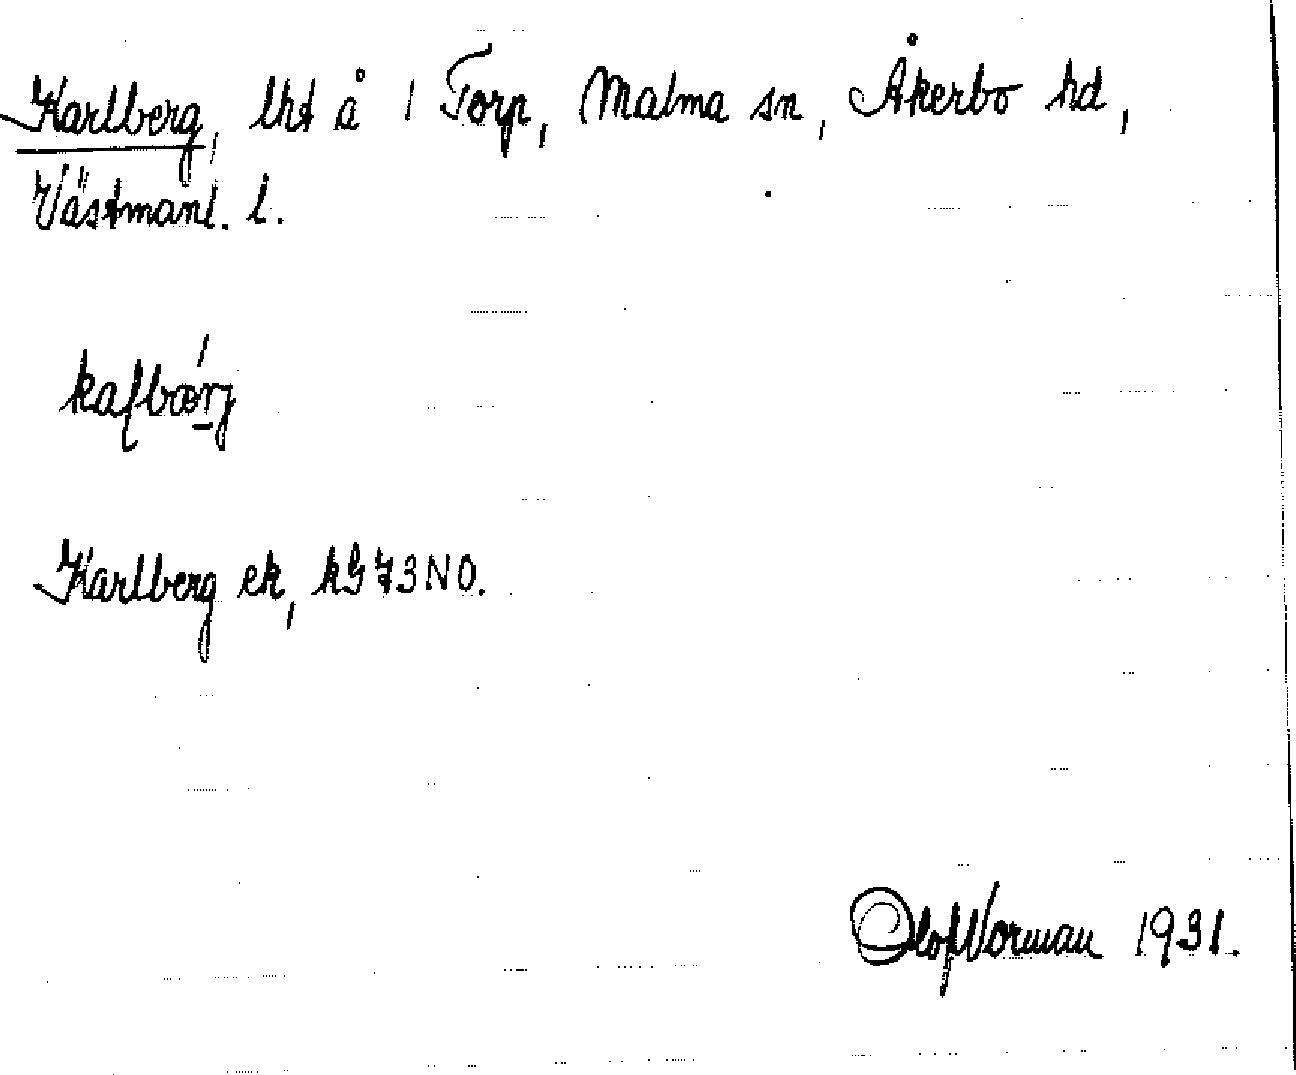 Karlberg, lht å 1 Torp, Malma sn, Åkerbo hd,
Västmanl. l.
kaſbœ́rj
Karlberg ek, kG 73 NO.
Olof Norman 1931.